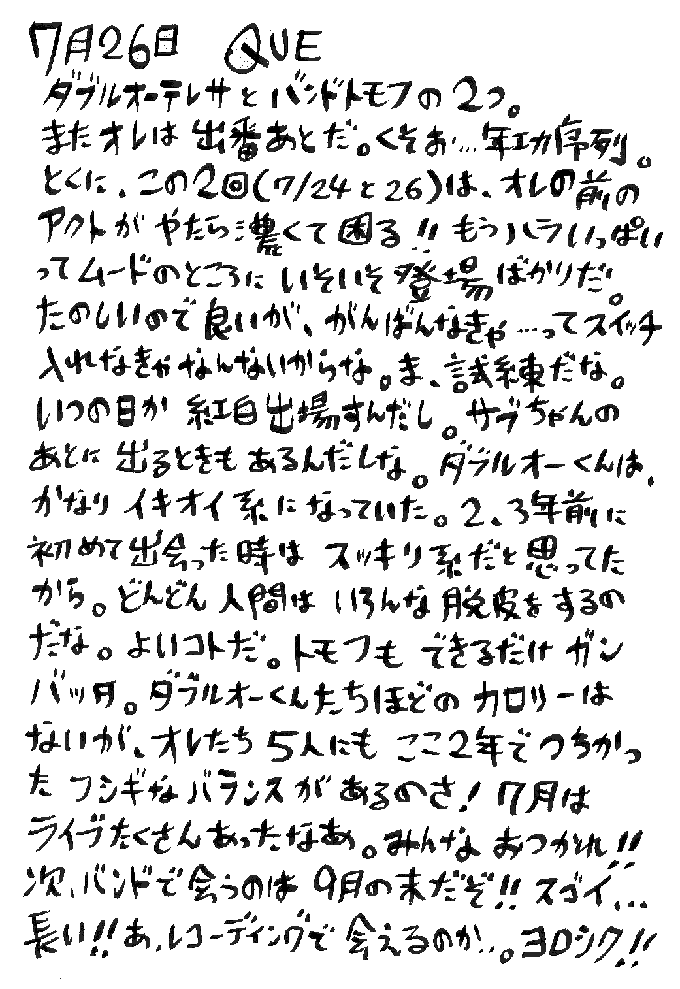 7月26日 QUE
ダブルオーテレサとバンドトモフの2つ。
またオレは出番あとだ。くそぉ…年功序列。
とくに、この2回(7/24と26)は、オレの前の
アクトがやたら濃くて困る!! もうハラいっぱい
ってムードのところにいそいそ登場ばかりだ。
たのしいので良いが、がんばんなきゃ…ってスイッチ
入れなきゃなんないからな。ま、試練だな。
いつの日か紅白出場すんだし。サブちゃんの
あとに出るときもあるんだしな。ダブルオーくんは、
かなりイキオイ系になっていた。2、3年前に
初めて出会った時はスッキリ系だと思ってた
から。どんどん人間はいろんな脱皮をするの
だな。よいコトだ。トモフもできるだけガン
バッタ。ダブルオーくんたちほどのカロリーは
ないが、オレたち5人にもここ2年でつちかっ
たフシギなバランスがあるのさ! 7月は
ライブたくさんあったなあ。みんなおつかれ!!
次、バンドで会うのは9月の末だぞ!! スゴイ…
長い!! あ、レコーディングで会えるのか…。ヨロシク!!